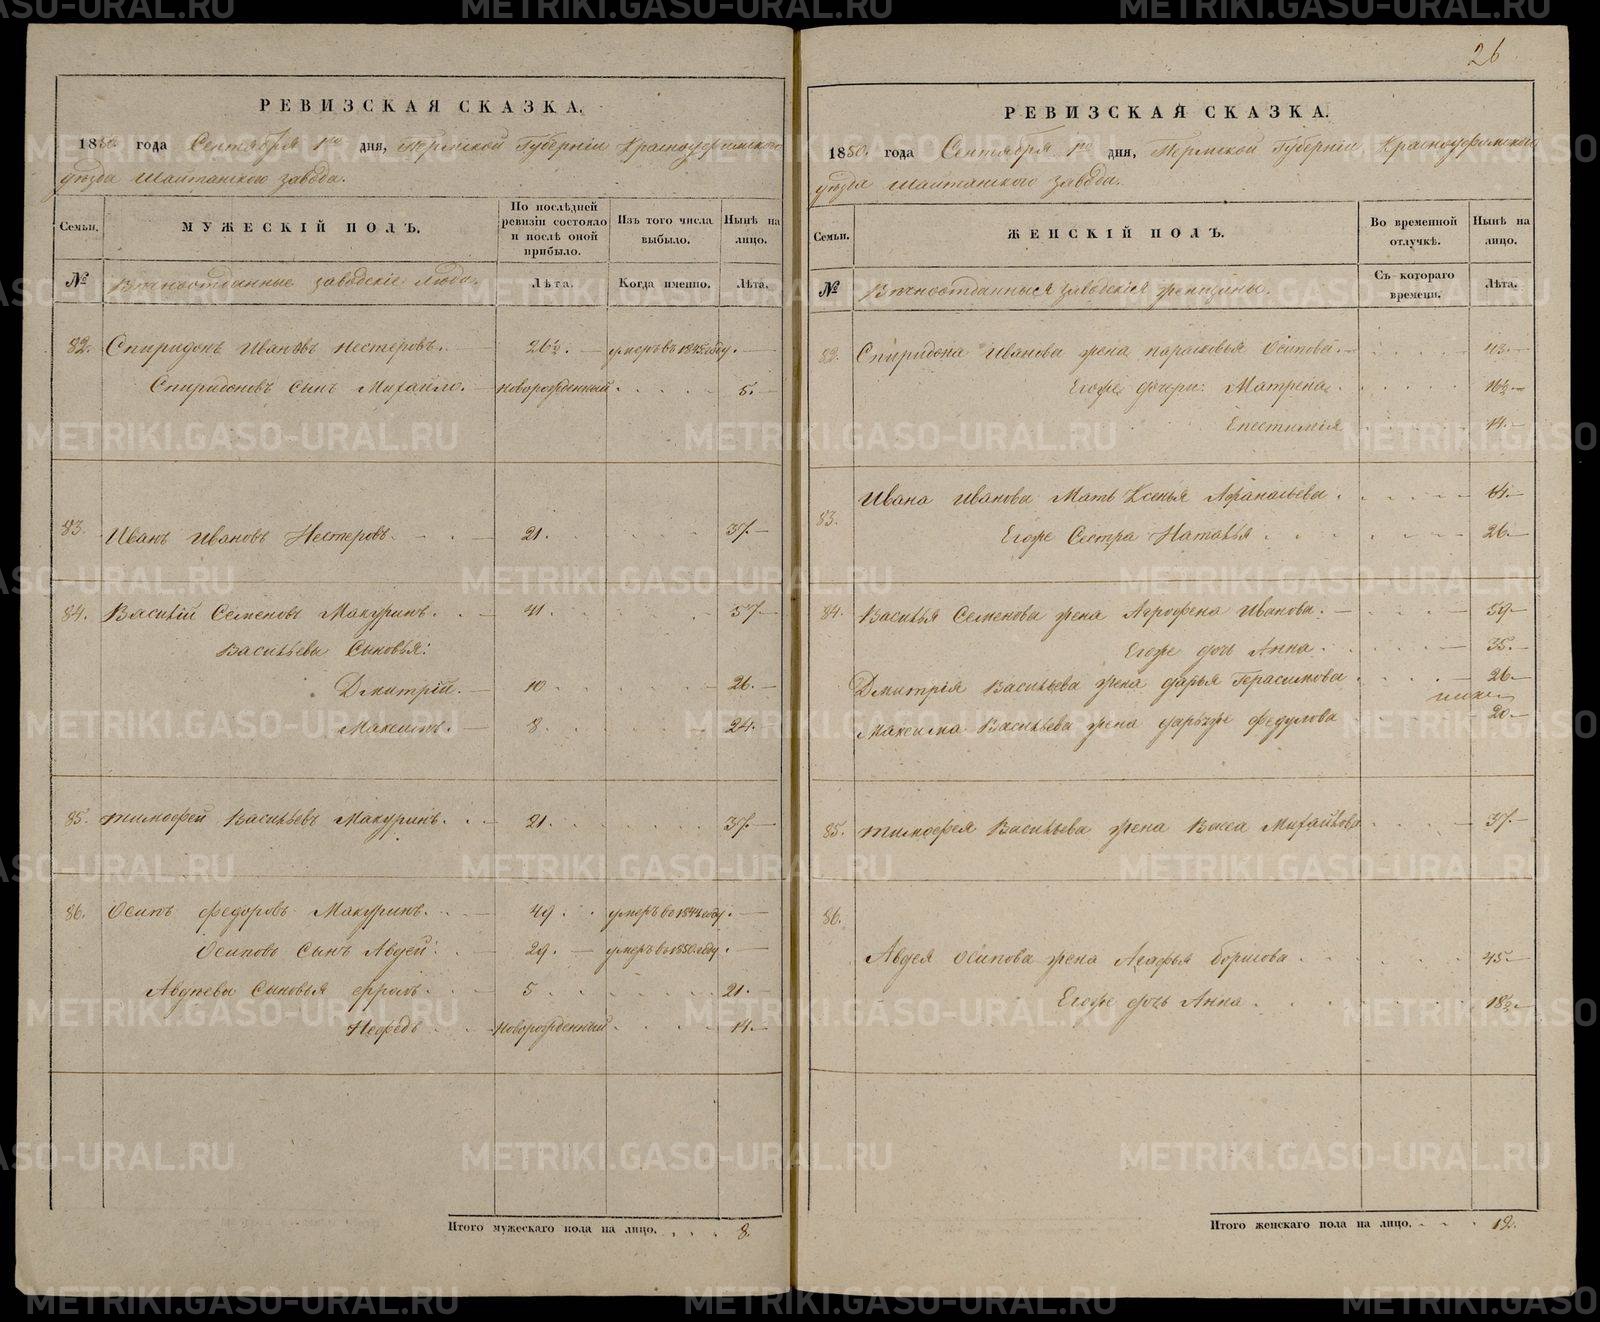 26
РЕВИЗСКАЯ СКАЗКА.
1850 года Сентября 1го дня, Пермской Губерніи Красноуфимскаго
уѣзда Шайтанского завода.
Семьи.
МУЖЕСКІЙ ПОЛЪ.
По послѣдней ревизіи состояло и послѣ оной прибыло.
Изъ того числа выбыло.
Нынѣ на лицо.
№ Вѣчноотданные заводскіе люди. Лѣта. Когда именно. Лѣта.
82. Спиридонъ Ивановъ Нестеровъ. 26½. умеръ въ 1845 году.
Спиридоновъ сынъ Михайло. новорожденный 5.
83. Иванъ Ивановъ Нестеровъ. 21. 37.
84. Василій Семеновъ Макуринъ. 41. 57.
Васильевы Сыновья:
Дмитрій. 10. 26.
Максимъ. 8. 24.
85. Тимофей Васильевъ Макуринъ. 21. 37.
86. Осипъ Федоровъ Макуринъ. 49. умеръ во 1844 году.
Осиповъ Сынъ Авдей: 29. умеръ во 1850 году.
Авдѣевы Сыновья Фролъ. 5 21.
Нефедъ новорожденный 14.
Итого мужескаго пола на лицо. 8.
РЕВИЗСКАЯ СКАЗКА.
1850. года Сентября 1го дня, Пермской Губерніи Красноуфимскаго
уѣзда Шайтанского завода.
Семьи.
ЖЕНСКІЙ ПОЛЪ.
Во временной отлучкѣ.
Нынѣ на лицо.
№ Вѣчноотданныя заводскія женщины. Съ котораго времени. Лѣта.
82. Спиридона Иванова жена Парасковья Осипова. 43.
Егоже дочери: Матрена. 16½.
Епестимія 14.
83. Ивана Иванова Мать Ксенья Афанасьева. 61.
Егоже Сестра Наталья 26.
84. Василья Семенова жена Агрофена Иванова. 59
Егоже дочь Анна. 35.
Дмитрія Васильева жена Дарья Герасимова 26.
Максима Васильева жена Дарья же Федулова 20.
85. Тимофея Васильева жена Васса Михайлова 37.
86.
Авдея Осипова жена Агафья Борисова 45.
Егоже дочь Анна. 18½.
Итого женскаго пола на лицо. 12.
METRIKI.GASO-URAL.RU